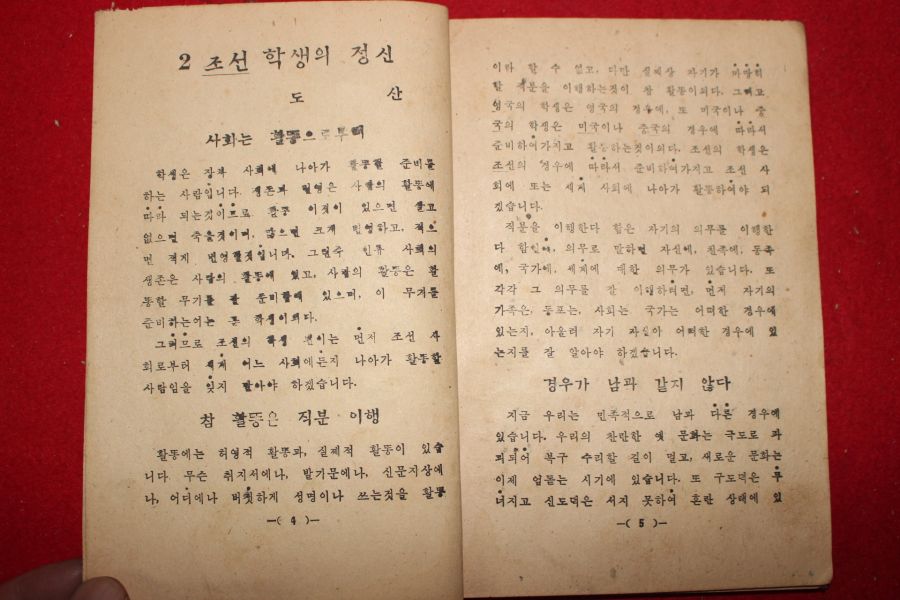 2 조선 학생의 정신
도 산
사회는 활동으로부터
학생은 장차 사회에 나아가 활동할 준비를
하는 사람입니다. 생존과 번영은 사람의 활동에
따라 되는것이므로 활동 이것이 있으면 살고
없으면 죽을것이며, 많으면 크게 번영하고, 적으
면 적게 번영할것입니다. 그런즉 인류 사회의
생존은 사람의 활동에 있고, 사람의 활동은 활
동할 무기를 잘 준비함에 있으며, 이 무기를
준비하는이는 곧 학생이외다.
그러므로 조선의 학생 된이는 먼저 조선 사
회로부터 세계 어느 사회에든지 나아가 활동할
사람임을 잊지 말아야 하겠습니다.
참 활동은 직분 이행
활동에는 허영적 활동과, 실제적 활동이 있습
니다. 무슨 취지서에나, 발기문에나, 신문지상에
나, 어디에나 버젓하게 성명이나 쓰는것을 활동
—( 4 )—
이라 할 수 없고, 다만 실제상 자기가 마땅히
할 직분을 이행하는것이 참 활동이외다. 그러고
영국의 학생은 영국의 경우에, 또 미국이나 중
국의 학생은 미국이나 중국의 경우에 따라서
준비하여가지고 활동하는것이외다. 조선의 학생은
조선의 경우에 따라서 준비하여가지고 조선 사
회에 또는 세계 사회에 나아가 활동하여야 되
겠습니다.
직분을 이행한다 함은 자기의 의무를 이행한
다 함인데, 의무로 말하면 자신에, 친족에, 동족
에, 국가에, 세계에 대한 의무가 있습니다. 또
각각 그 의무를 잘 이행하려면, 먼저 자기의
가족은, 동포는, 사회는 국가는 어떠한 경우에
있는지, 아울러 자기 자신이 어떠한 경우에 있
는지를 잘 알아야 하겠습니다.
경우가 남과 같지 않다
지금 우리는 민족적으로 남과 다른 경우에
있습니다. 우리의 찬란한 옛 문화는 극도로 파
괴되어 복구 수리할 길이 멀고, 새로운 문화는
이제 움돋는 시기에 있습니다. 또 구도덕은 무
너지고 신도덕은 서지 못하여 혼란 상태에 있
—( 5 )—